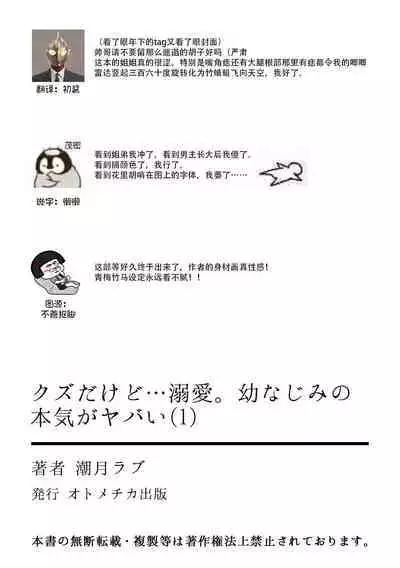 （看了眼年下的tag又看了眼封面）
帅哥请不要留那么邋遢的胡子好吗（严肃
这本的姐姐真的很涩，特别是嘴角痣还有大腿根部那里有痣都令我的唧唧
雷达竖起三百六十度旋转化为竹蜻蜓飞向天空，我好了。
翻译：初鼠
茂密
看到姐弟我冲了，看到男主长大后我痿了。
看到搞颜色了，我行了。
看到花里胡哨在图上的字体，我萎了……
嵌字：懒懒
这部等好久终于出来了，作者的身材画真性感！
青梅竹马设定永远看不腻！！
图源：
不善抠脚
クズだけど…溺愛。幼なじみの
本気がヤバい(1)
著者 潮月ラブ
発行 オトメチカ出版
本書の無断転載・複製等は著作権法上禁止されております。